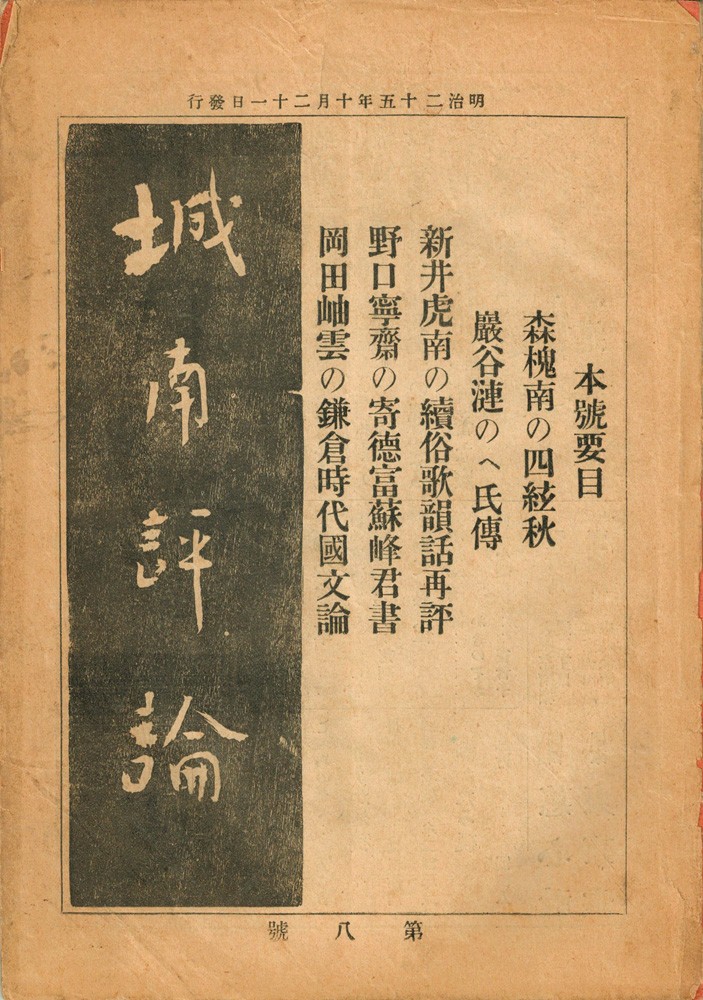 明治二十五年十月二十一日發行
本號要目
森槐南の四絃秋
巖谷漣のヘ氏傳
新井虎南の續俗歌韻話再評
野口寧齋の寄德富蘇峰君書
岡田岫雲の鎌倉時代國文論
城南評論
第八號